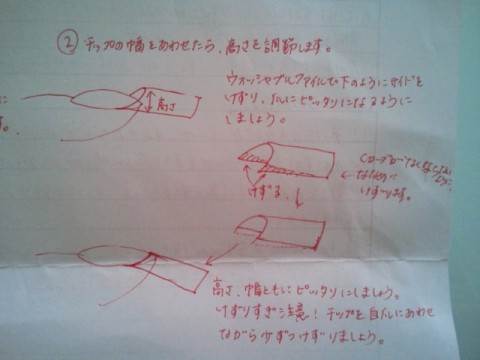 ② チップの幅をあわせたら、高さを調節します。
ウォッシャブルファイルで下のようにサイドを
けずり、爪にピッタリになるように
しましょう。
高さ
に
す。
Cカーブがなくならない
ように
ななめに
けずります。
けずる。
高さ、幅ともにピッタリにしましょう。
けずりすぎ注意！チップを自爪にあわせ
ながら少ずつけずりましょう。